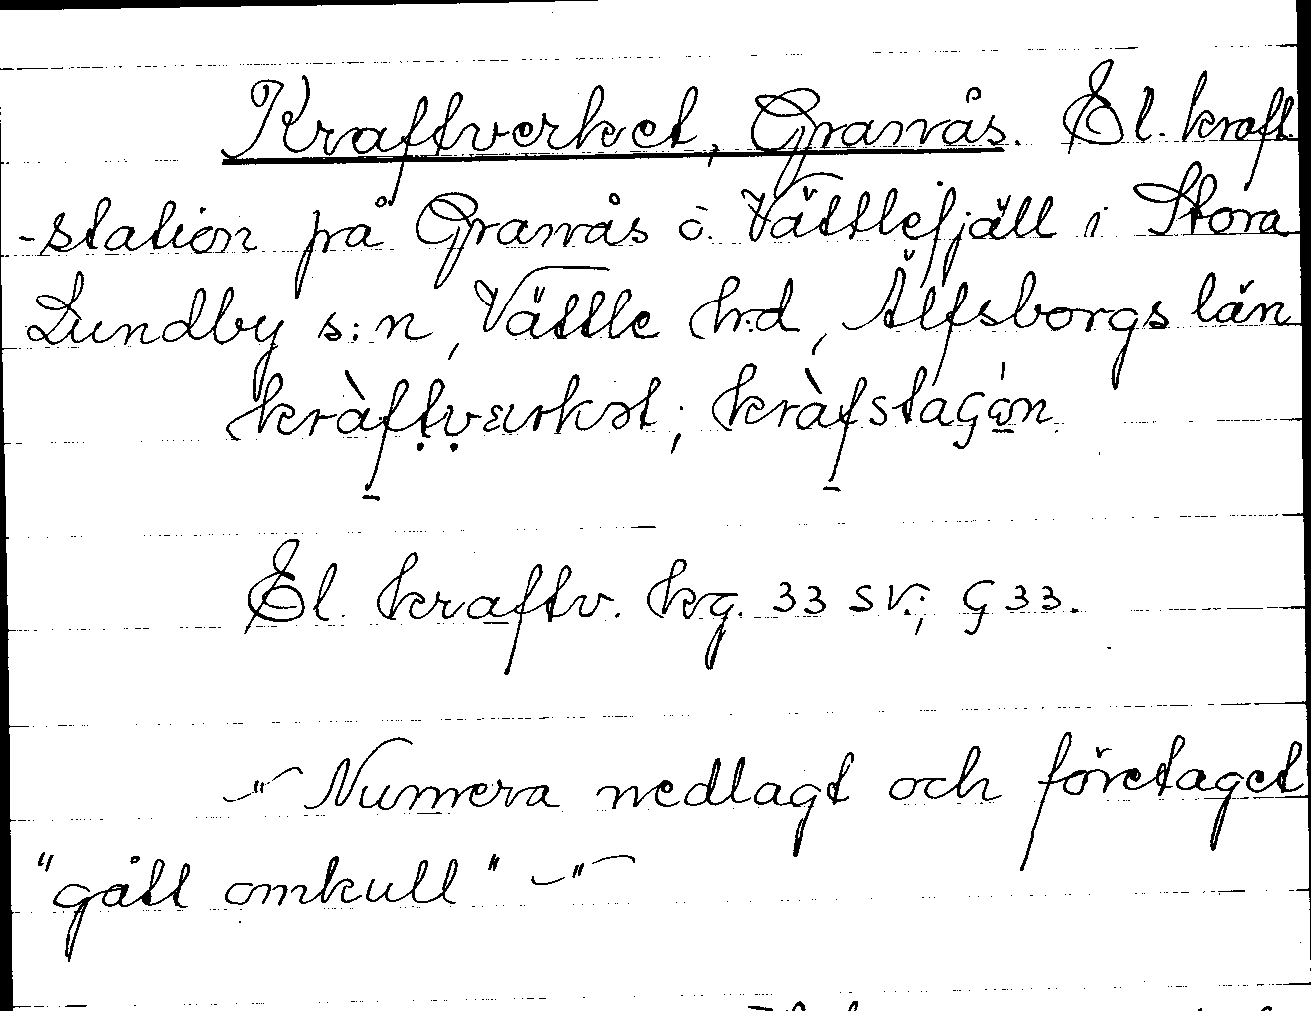 Kraftverket, Granås. El. kraft
-station på Granås ö. Vättlefjäll i Stora
Lundby s:n, Vättle h:d, Älfsborgs län
kràftværkət; kràfstaʂón
El. kraftv. kg. 33 SV.; G 33.
–"– Numera nedlagt och företaget
"gått omkull" –"–